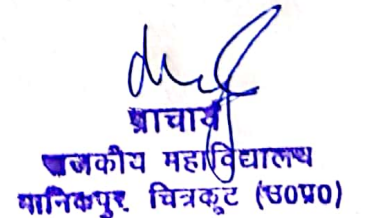 प्राचार्य
राजकीय महाविद्यालय
मानिकपुर चित्रकूट (उ0प्र0)